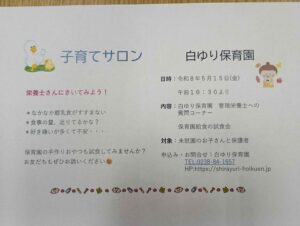 子育てサロン
栄養士さんにきいてみよう!
*なかなか離乳食がすすまない
*食事の量、足りてるかな?
*好き嫌いが多くて不安・・・
保育園の手作りおやつも試食してみませんか?
お友だちもぜひお誘いください
白ゆり保育園
日時:令和8年5月15日(金)
午前10:30より
内容:白ゆり保育園 管理栄養士への
質問コーナー
保育園給食の試食会
対象:未就園のお子さんと保護者
申込み・お問合せ:白ゆり保育園
TEL:0238-84-1957
HP:https://shirayuri-hoikuen.jp